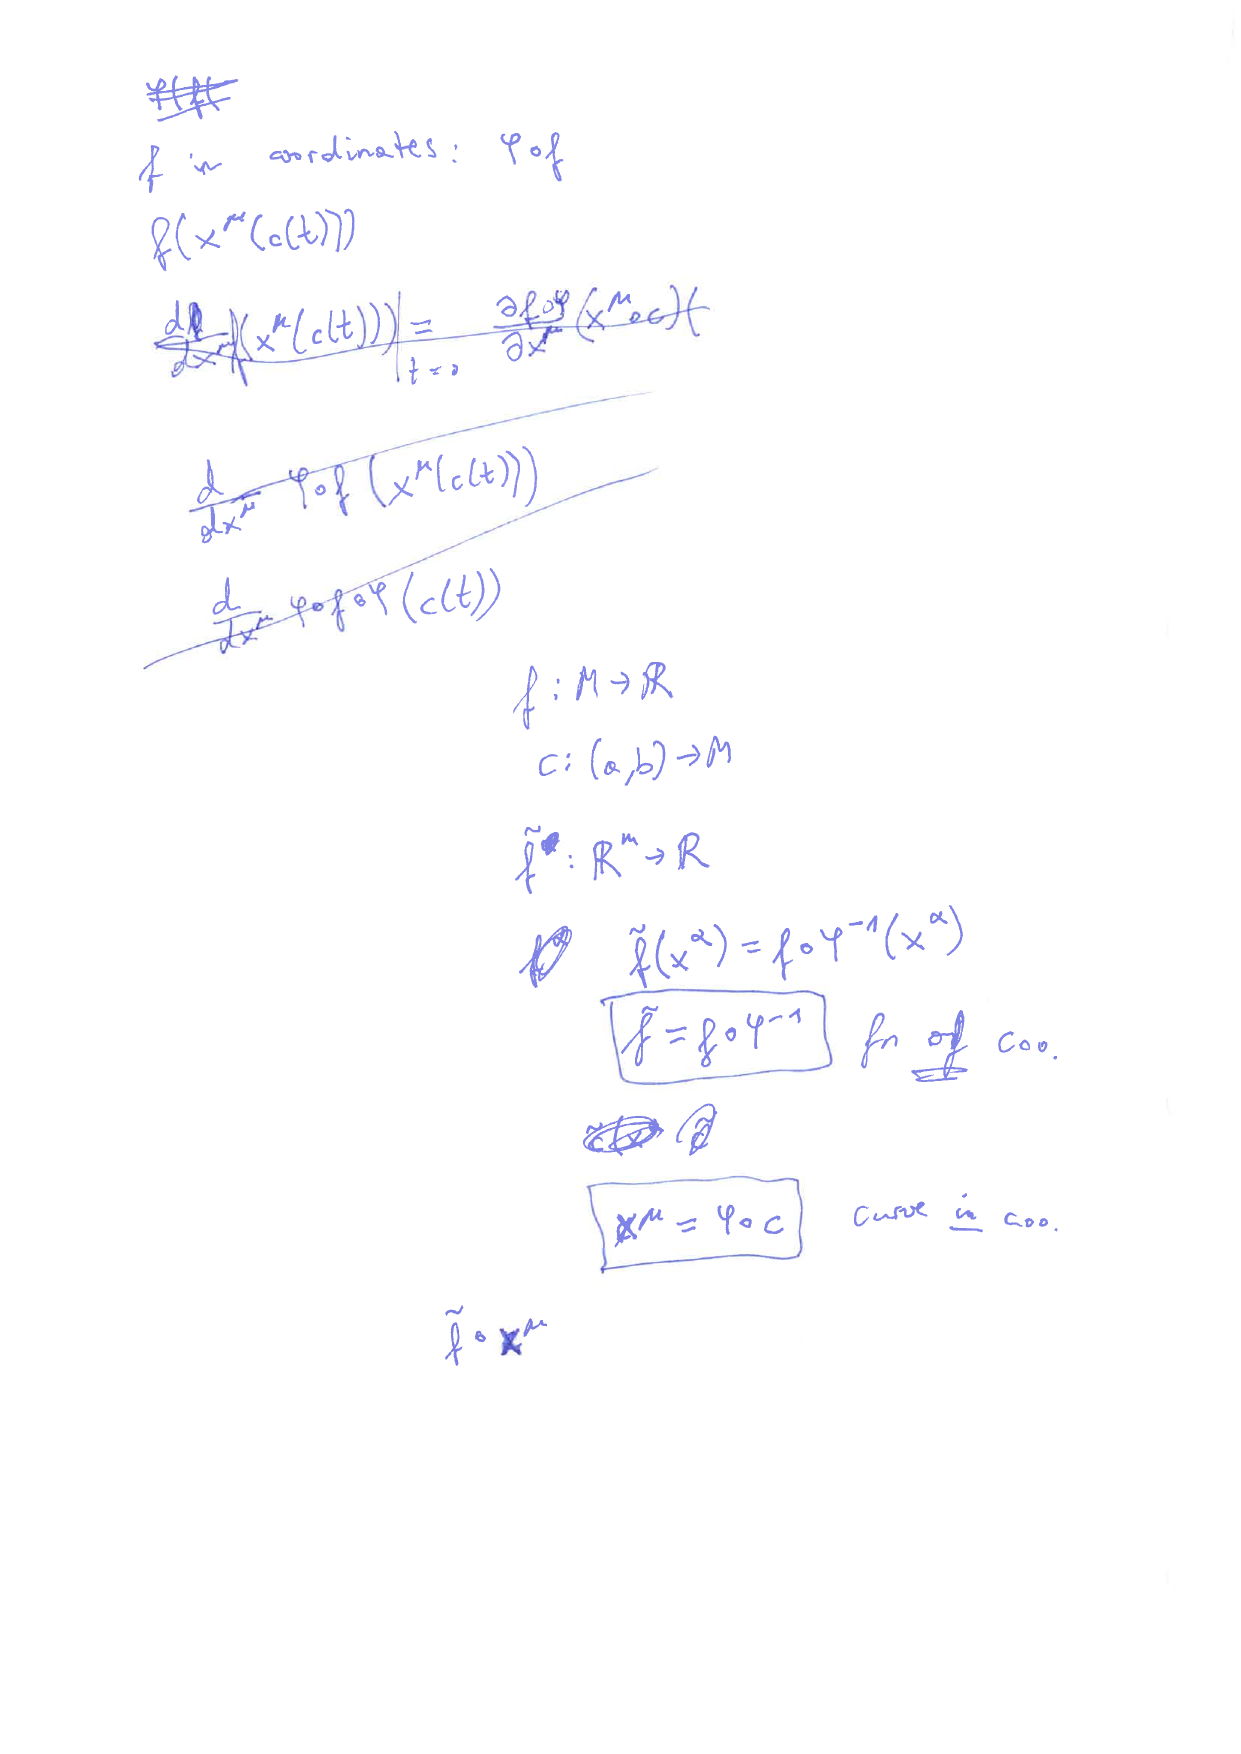 φ(f(
f in coordinates: φ∘f
f(x^μ(c(t)))
d/dx^μ f(x^μ(c(t)))|_{t=0} = ∂f∘φ/∂x^μ (x^μ∘c)(
d/dx^μ φ∘f (x^μ(c(t)))
d/dx^μ φ∘f∘φ(c(t))
f: M → ℝ
c: (a,b) → M
f̃ : ℝ^m → ℝ
f̃(x^α) = f∘φ^{-1}(x^α)
f̃ = f∘φ^{-1} fn of coo.
x^μ = φ∘c curve in coo.
f̃ ∘ x^μ